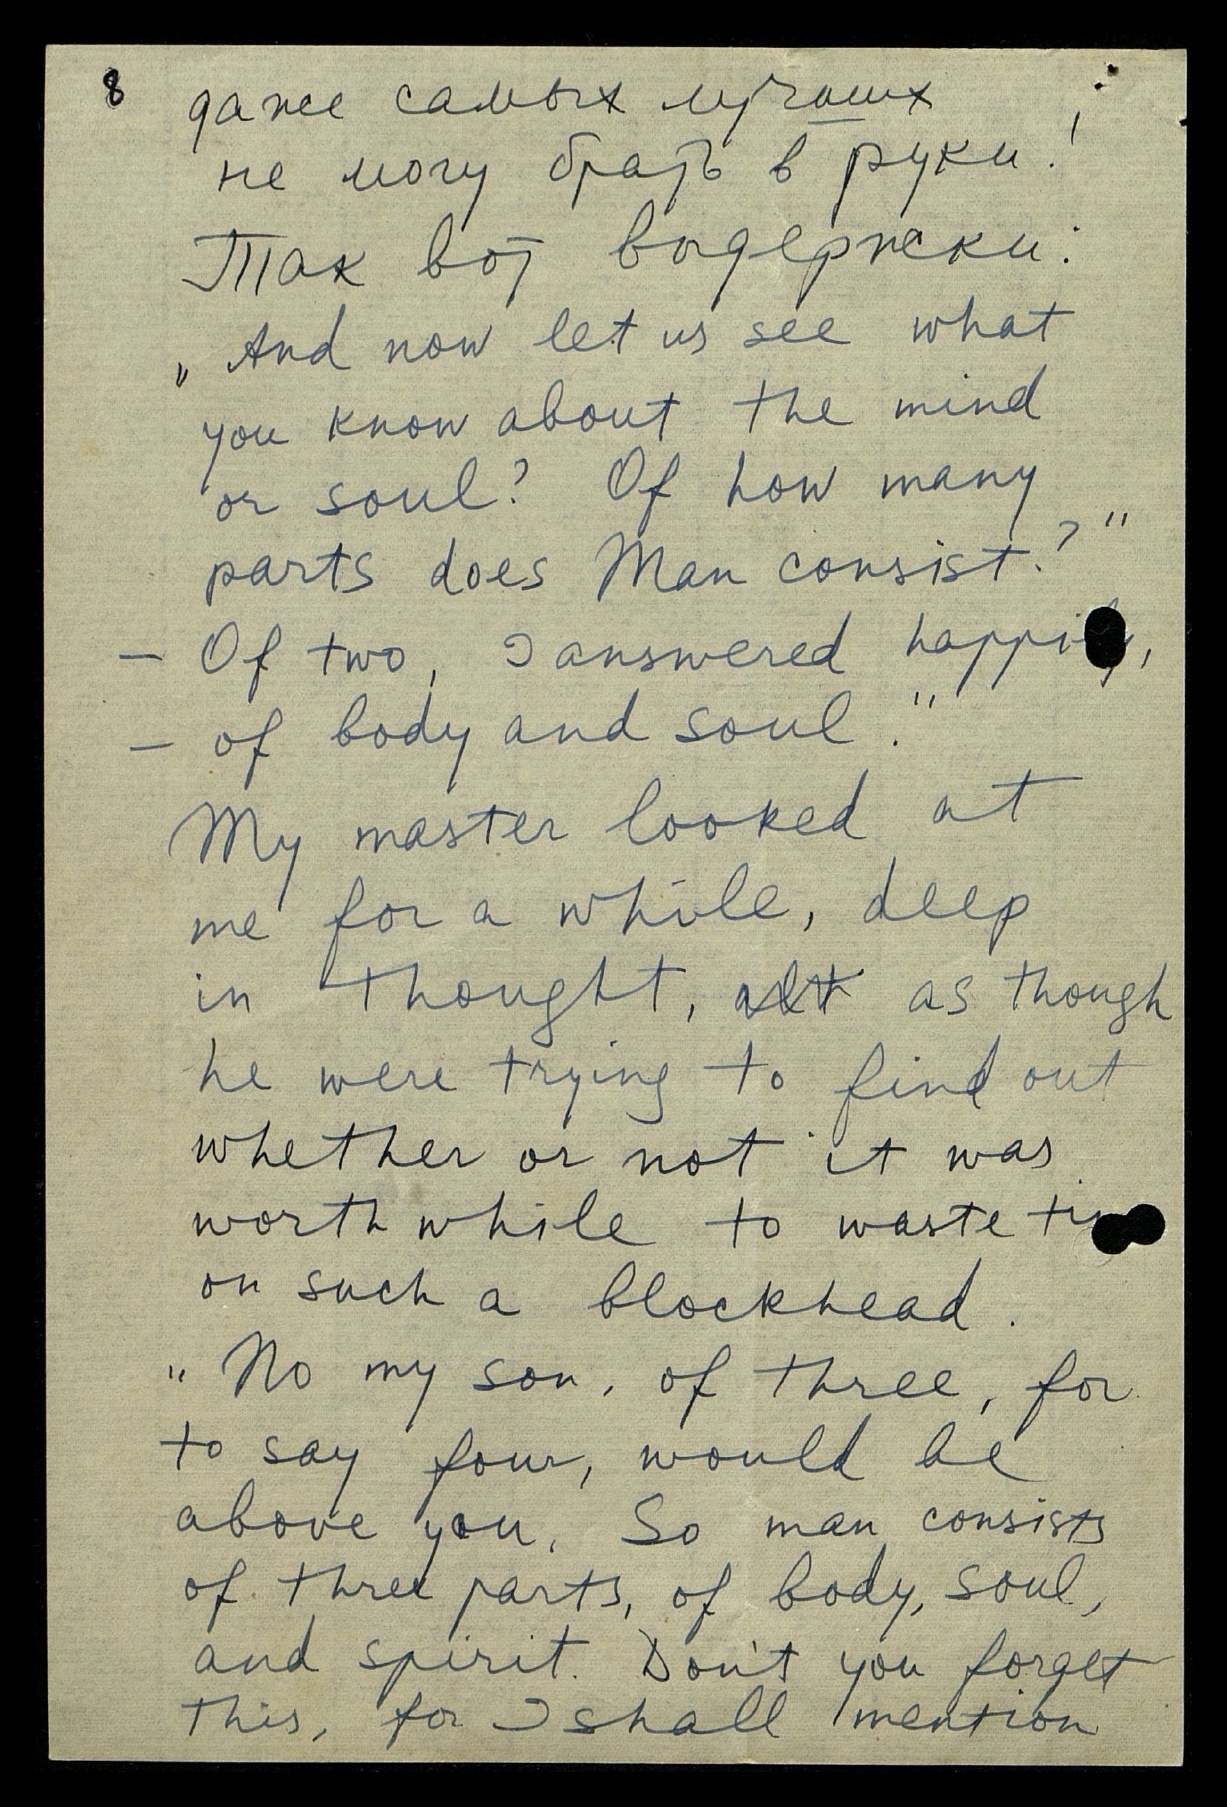 8 даже самых лучших
не могу брать в руки!
Так вот выдержки:
„And now let us see what
you know about the mind
or soul? Of how many
parts does Man consist?"
— Of two, I answered happily,
— of body and soul."
My master looked at
me for a while, deep
in thought, as though
he were trying to find out
whether or not it was
worth while to waste
on such a blockhead.
"No my son, of three, for
to say four, would be
above you. So man consists
of three parts, of body, soul,
and spirit. Don't you forget
this, for I shall mention